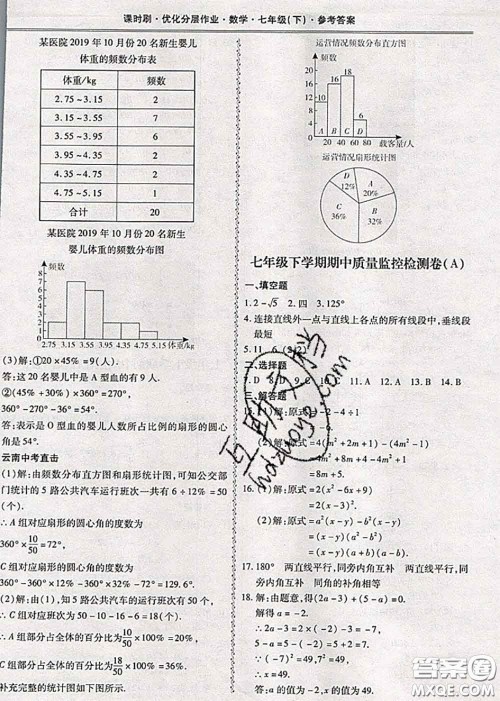 课时刷·优化分层作业·数学·七年级(下)·参考答案
某医院 2019 年 10 月份 20 名新生婴儿
体重的频数分布表
体重/kg 频数
2.75～3.15 2
3.15～3.55 7
3.55～3.95 6
3.95～4.35 2
4.35～4.75 2
4.75～5.15 1
合计 20
某医院 2019 年 10 月份 20 名新生
婴儿体重的频数分布图
频数
8
7
6
5
4
3
2
1
0
2.75 3.15 3.55 3.95 4.35 4.75 5.15 体重/kg
(3)解:①20×45%=9(人).
答:这 20 名婴儿中是 A 型血的有 9 人.
②(45%+30%)×360°=270°,
360°-270°-36°=54°.
答:表示是 O 型血的婴儿人数所占比例的扇形的圆心
角是 54°.
云南中考直击
(1)解:由频数分布直方图和扇形统计图,可知公交部
门统计的 5 路公共汽车运行班次一共有 6÷12%=50
(个).
∴A 组对应扇形的圆心角的度数为
360°×10/50=72°,
C 组对应扇形的圆心角的度数为
360°×36%=129.6°.
(2)解:由(1),知 5 路公共汽车的运行班次有 50 个,
∴B 组对应班次为 50-18-10-6=16(个).
∴A 组部分占全体的百分比为10/50×100%=20%,
C 组部分占全体的百分比为18/50×100%=36%.
补充完整的统计图如下图所示.
运营情况频数分布直方图
频数
20
18
16
16
12
10
8
5
4
0
A B C D
20 40 60 80 载客量/人
运营情况扇形统计图
D
12%
A
20%
C
36%
B
32%
七年级下学期期中质量监控检测卷(A)
一、填空题
1. 2-√5 2. 四 3. 125°
4. 连接直线外一点与直线上各点的所有线段中,垂线段
最短
5. 11 6.
二、选择题
7. D 8. D 9. C 11. A 12. A 13. B 14. B
三、解答题
15. 解:原式=-2-4+1
(2)解:原式=4(m²+2m+1)-(4m²-1)
=4m²+8m+4-4m²+1
=8m+5.
16. (1)解:原式=2(x²-6x+9)
=2(x-3)².
(2)解:原式=a²(x-y)-b²(x-y)
=(x-y)(a²-b²)
17. 180° 两直线平行,同旁内角互补 两直线平行,同
旁内角互补 同角的补角相等
18. 解:由题意,得(2+a)+(5-a)=
∴2a-3=2×(-2)-3=-7,
5-a=5-(-2)=7.
∵(-7)²=49,7²=49,
∴x=49.
答:a 的值为-2,x 的值为 49.
互助文档
hdzuoye.com
答案圈
MXQE.COM